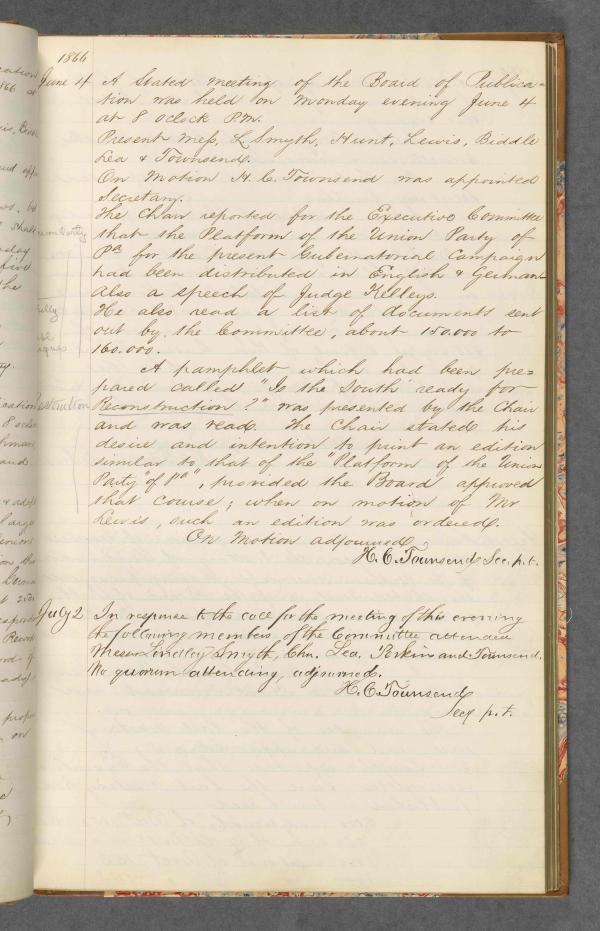 1866
June 4 A Stated meeting of the Board of Publica=
tion was held on Monday evening June 4
at 8 oclock P.M.
Present Mess. L. Smyth, Hunt, Lewis, Biddle
Lea & Townsend.
On Motion H. C. Townsend was appointed
Secretary.
The Chair reported for the Executive Committee
that the Platform of the Union Party of
Pa for the present Gubernatorial Campaign
had been distributed in English & German
Also a Speech of Judge Kelleys.
He also read a list of documents sent
out by the Committee, about 150.000 to
160.000.
A pamphlet which had been pre=
pared called "Is the South ready for
Reconstruction?" was presented by the Chair
and was read. The Chair stated his
desire and intention to print an edition
similar to that of the "Platform of the Union
Party" of Pa", provided the Board approved
that course; when on motion of Mr
Lewis, such an edition was ordered.
On Motion adjourned,
H. C. Townsend Sec. p.t.
July 2 In response to the call for the meeting of this evening
the following members of the Committee attended
Messrs Lindley Smyth, Chn. Lea. Perkins and Townsend.
No quorum attending, adjourned.
H. C. Townsend
Secy p.t.